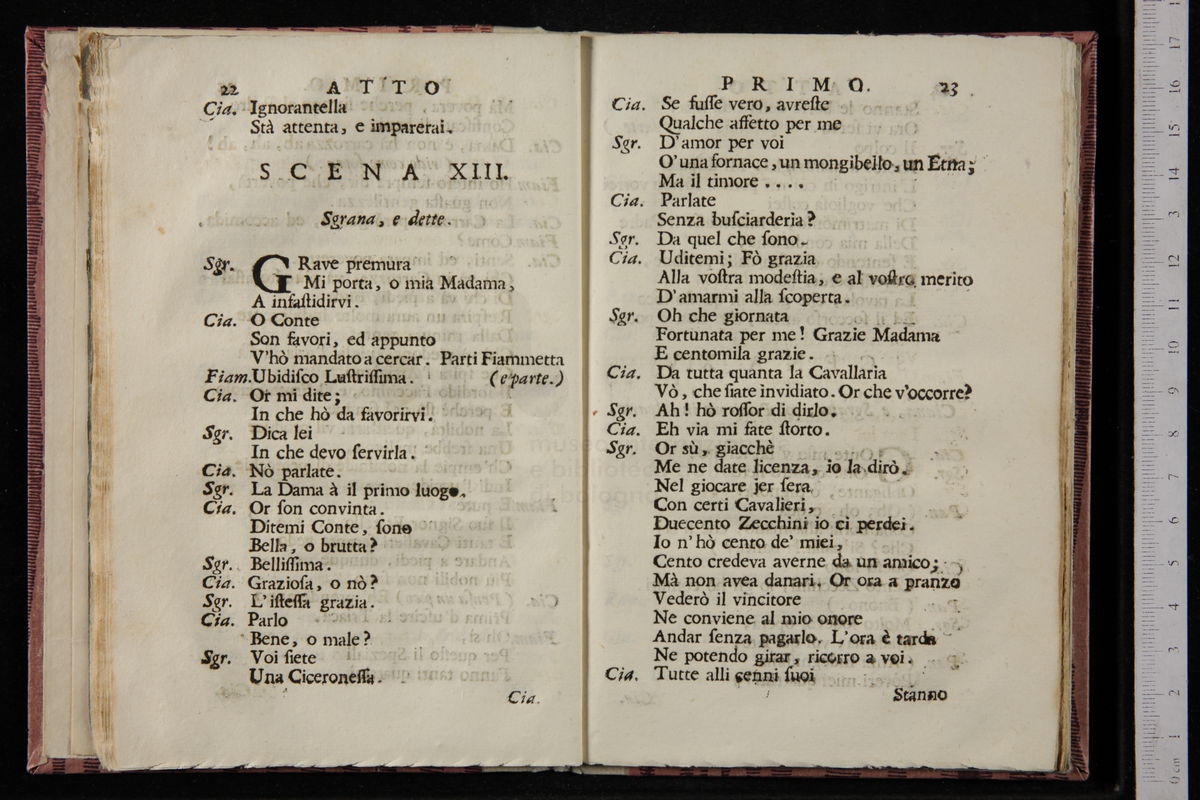 22 ATTO
Cia. Ignorantella
Stà attenta, e imparerai.
SCENA XIII.
Sgrana, e dette.
Sgr. GRave premura
Mi porta, o mia Madama,
A infaſtidirvi.
Cia. O Conte
Son favori, ed appunto
V'hò mandato a cercar. Parti Fiammetta
Fiam. Ubidiſco Luſtriſſima. (e parte.)
Cia. Or mi dite;
In che hò da favorirvi.
Sgr. Dica lei
In che devo ſervirla.
Cia. Nò parlate.
Sgr. La Dama à il primo luogo.
Cia. Or ſon convinta.
Ditemi Conte, ſono
Bella, o brutta?
Sgr. Belliſſima.
Cia. Grazioſa, o nò?
Sgr. L'iſteſſa grazia.
Cia. Parlo
Bene, o male?
Sgr. Voi ſiete
Una Ciceroneſſa.
Cia.
PRIMO. 23
Cia. Se fuſſe vero, avreſte
Qualche affetto per me
Sgr. D'amor per voi
O' una fornace, un mongibello, un Etna;
Ma il timore . . . .
Cia. Parlate
Senza buſciarderia?
Sgr. Da quel che ſono.
Cia. Uditemi; Fò grazia
Alla voſtra modeſtia, e al voſtro merito
D'amarmi alla ſcoperta.
Sgr. Oh che giornata
Fortunata per me! Grazie Madama
E centomila grazie.
Cia. Da tutta quanta la Cavallaria
Vò, che ſiate invidiato. Or che v'occorre?
Sgr. Ah! hò roſſor di dirlo.
Cia. Eh via mi fate ſtorto.
Sgr. Or sù, giacchè
Me ne date licenza, io la dirò.
Nel giocare jer ſera
Con certi Cavalieri,
Duecento Zecchini io ci perdei.
Io n'hò cento de' miei,
Cento credeva averne da un amico;
Mà non avea danari. Or ora a pranzo
Vederò il vincitore
Ne conviene al mio onore
Andar ſenza pagarlo. L'ora è tarda
Ne potendo girar, ricorro a voi.
Cia. Tutte alli cenni ſuoi
Stanno